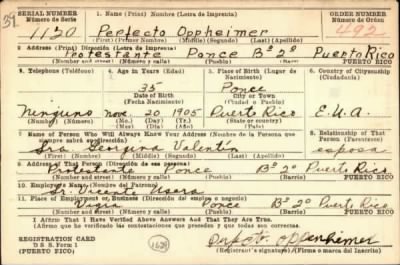 SERIAL NUMBER 1. Name (Print) Nombre (Letra de Imprenta) ORDER NUMBER
Número de Serie Número de Orden
39.
1120 Perfecto Oppheimer 492
(First) (Primer Nombre) (Middle) (Segundo) (Last) (Apellido)
2 Address (Print) Dirección (Letra de Imprenta)
Protestante Ponce Bº 2º Puerto Rico
(Number and street) (Número y calle) (Town) (Pueblo) (Barrio) PUERTO RICO
3. Telephone (Teléfono) 4. Age in Years (Edad) 5. Place of Birth (Lugar de Nacimiento) 6. Country of Citizenship (Ciudadanía)
35 Ponce
Date of Birth City or Town
(Fecha Nacimiento) (Ciudad o Pueblo)
Ninguno Nov. 20 1905 Puerto Rico E.U.A.
(Number) (Número) (Mo.) (Day) (Yr.) (State or country)
(Mes) (Día) (Año) (Estado o país)
7 Name of Person Who Will Always Know Your Address (Nombre de la Persona que siempre sabrá su dirección) 8. Relationship of That Person (Parentesco)
Sra. Georgina Valentín esposa
(First) (Nombre) (Middle) (Segundo) (Last) (Apellido)
9 Address of That Person (Dirección de esa persona)
Protestante Ponce Bº 2º Puerto Rico
(Number and street) (Número y calle) (Town) (Pueblo) (Barrio) PUERTO RICO
10 Employer's Name (Nombre del Patrono)
Sr. Vicente Usera
11 Place of Employment or Business (Dirección del empleo o negocio)
Vigía Ponce Bº 2º Puerto Rico
(Number and street) (Número y calle) (Town) (Pueblo) (Barrio) PUERTO RICO
I Affirm That I Have Verified Above Answers And That They Are True.
Afirmo que he verificado las contestaciones que preceden y que todas son correctas.
REGISTRATION CARD
D S S. Form 1
(PUERTO RICO)
Perfecto Oppenheimer
(Registrant's signature) (Firma o marca del Inscrito)